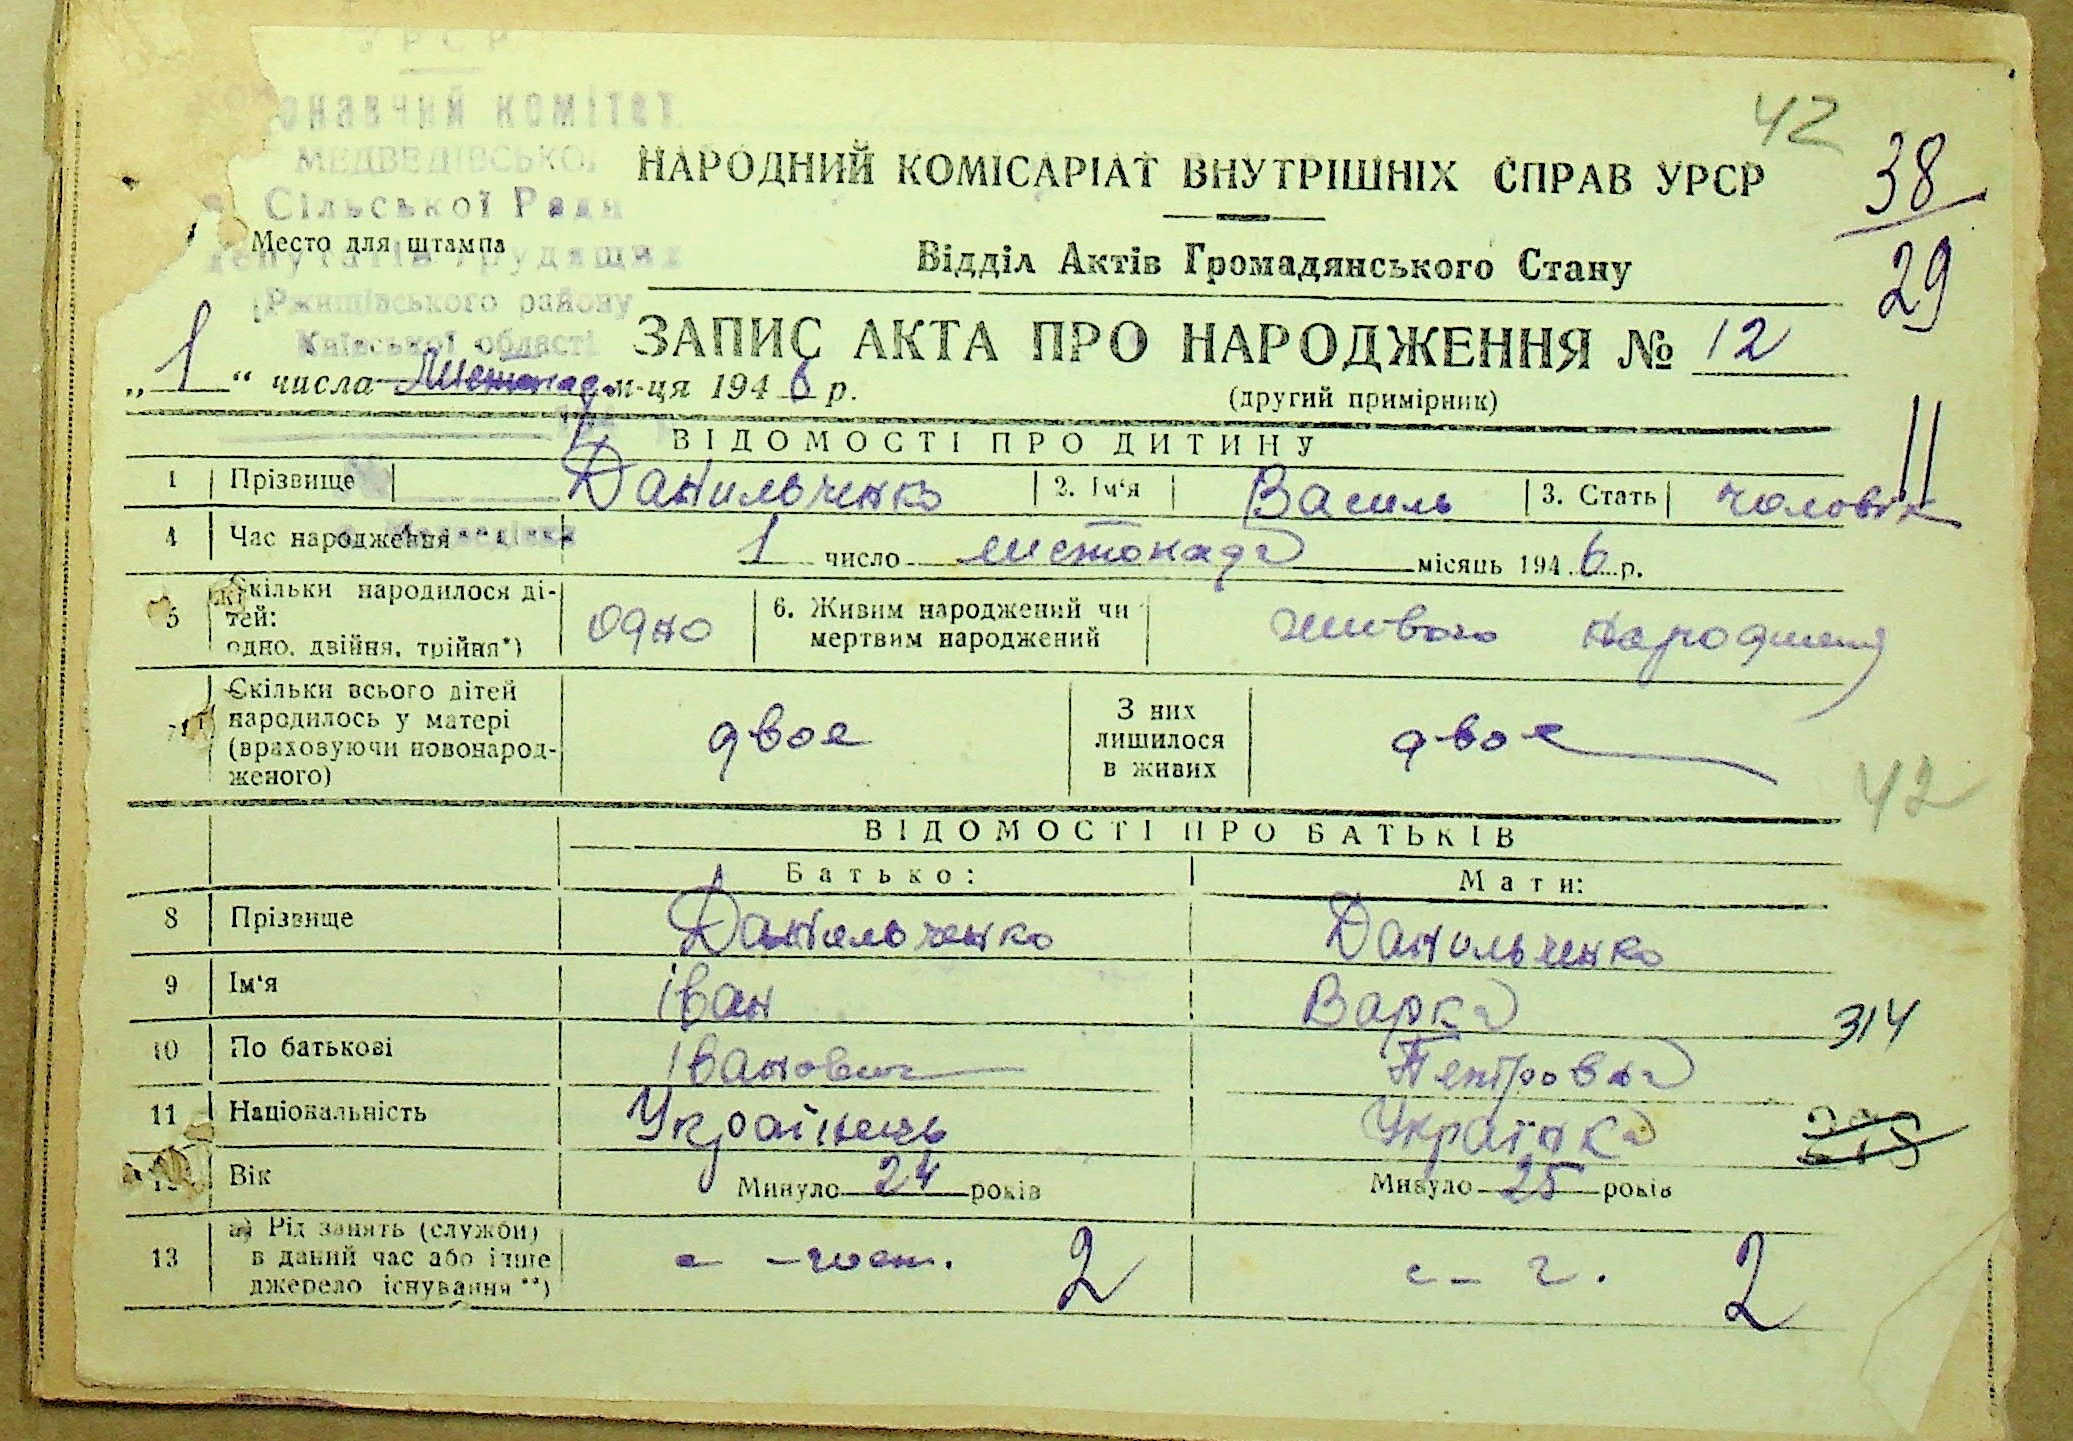 УРСР
онавчий комітет
МЕДВЕДІВСЬКОЇ
Сільської Ради
депутатів трудящих
Ржищівського району
Київської області
Место для штампа
42
38
29
НАРОДНИЙ КОМІСАРІАТ ВНУТРІШНІХ СПРАВ УРСР
Відділ Актів Громадянського Стану
ЗАПИС АКТА ПРО НАРОДЖЕННЯ № 12
„1“ числа Листопада м-ця 1946 р.
(другий примірник)
11
ВІДОМОСТІ ПРО ДИТИНУ
1 Прізвище Данильченко 2. Ім'я Василь 3. Стать чоловік
4 Час народження 1 число листопада місяць 1946 р.
5 Скільки народилося дітей: одно, двійня, трійня*) одно 6. Живим народжений чи мертвим народжений живого
Скільки всього дітей народилось у матері (враховуючи новонародженого) двое З них лишилося в живих двое
42
ВІДОМОСТІ ПРО БАТЬКІВ
Батько: Мати:
8 Прізвище Данильченко Данильченко
9 Ім'я Іван Варка
314
10 По батькові Іванович Петровна
11 Національність Українець Українка
12 Вік Минуло 24 років Минуло 25 років
13 а) Рід занять (служби) в даний час або інше джерело існування **) с-госп. 2 с-г. 2